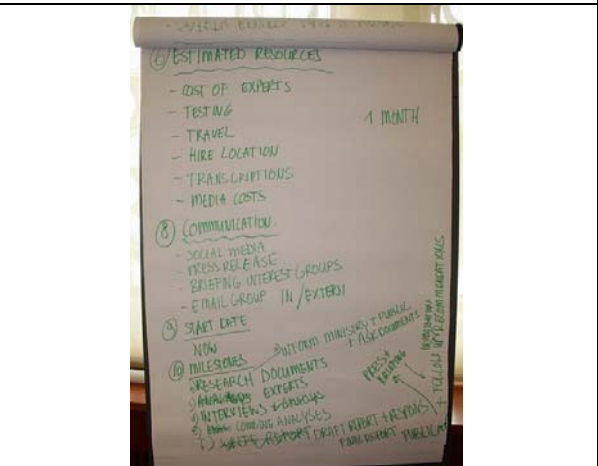 ⑥ ESTIMATED RESOURCES
- COST OF EXPERTS
- TESTING
1 MONTH
- TRAVEL
- HIRE LOCATION
- TRANSCRIPTIONS
- MEDIA COSTS
⑧ COMMUNICATION
- SOCIAL MEDIA
- PRESS RELEASE
- BRIEFING INTEREST GROUPS
- EMAIL GROUP IN/EXTERN
⑨ START DATE
NOW
⑩ MILESTONES
INFORM MINISTRY + PUBLIC
+ ASK DOCUMENTS
RESEARCH DOCUMENTS
EXPERTS
INTERVIEWS
ANALYSES
DRAFT REPORT
FINAL REPORT
PRESS +
+ FOLLOW RECOMMENDATIONS